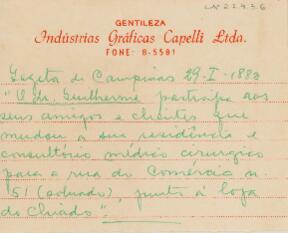 GENTILEZA
Indústrias Gráficas Capelli Ltda.
FONE: 8-5581
Gazeta de Campinas 29-I-1888
"O Dr. Guilherme participa aos
seus amigos e clientes que
mudou a sua residência e
consultório médico cirurgico
para a rua do Comércio n.
51 (sobrado), junto á loja
do Chiado".